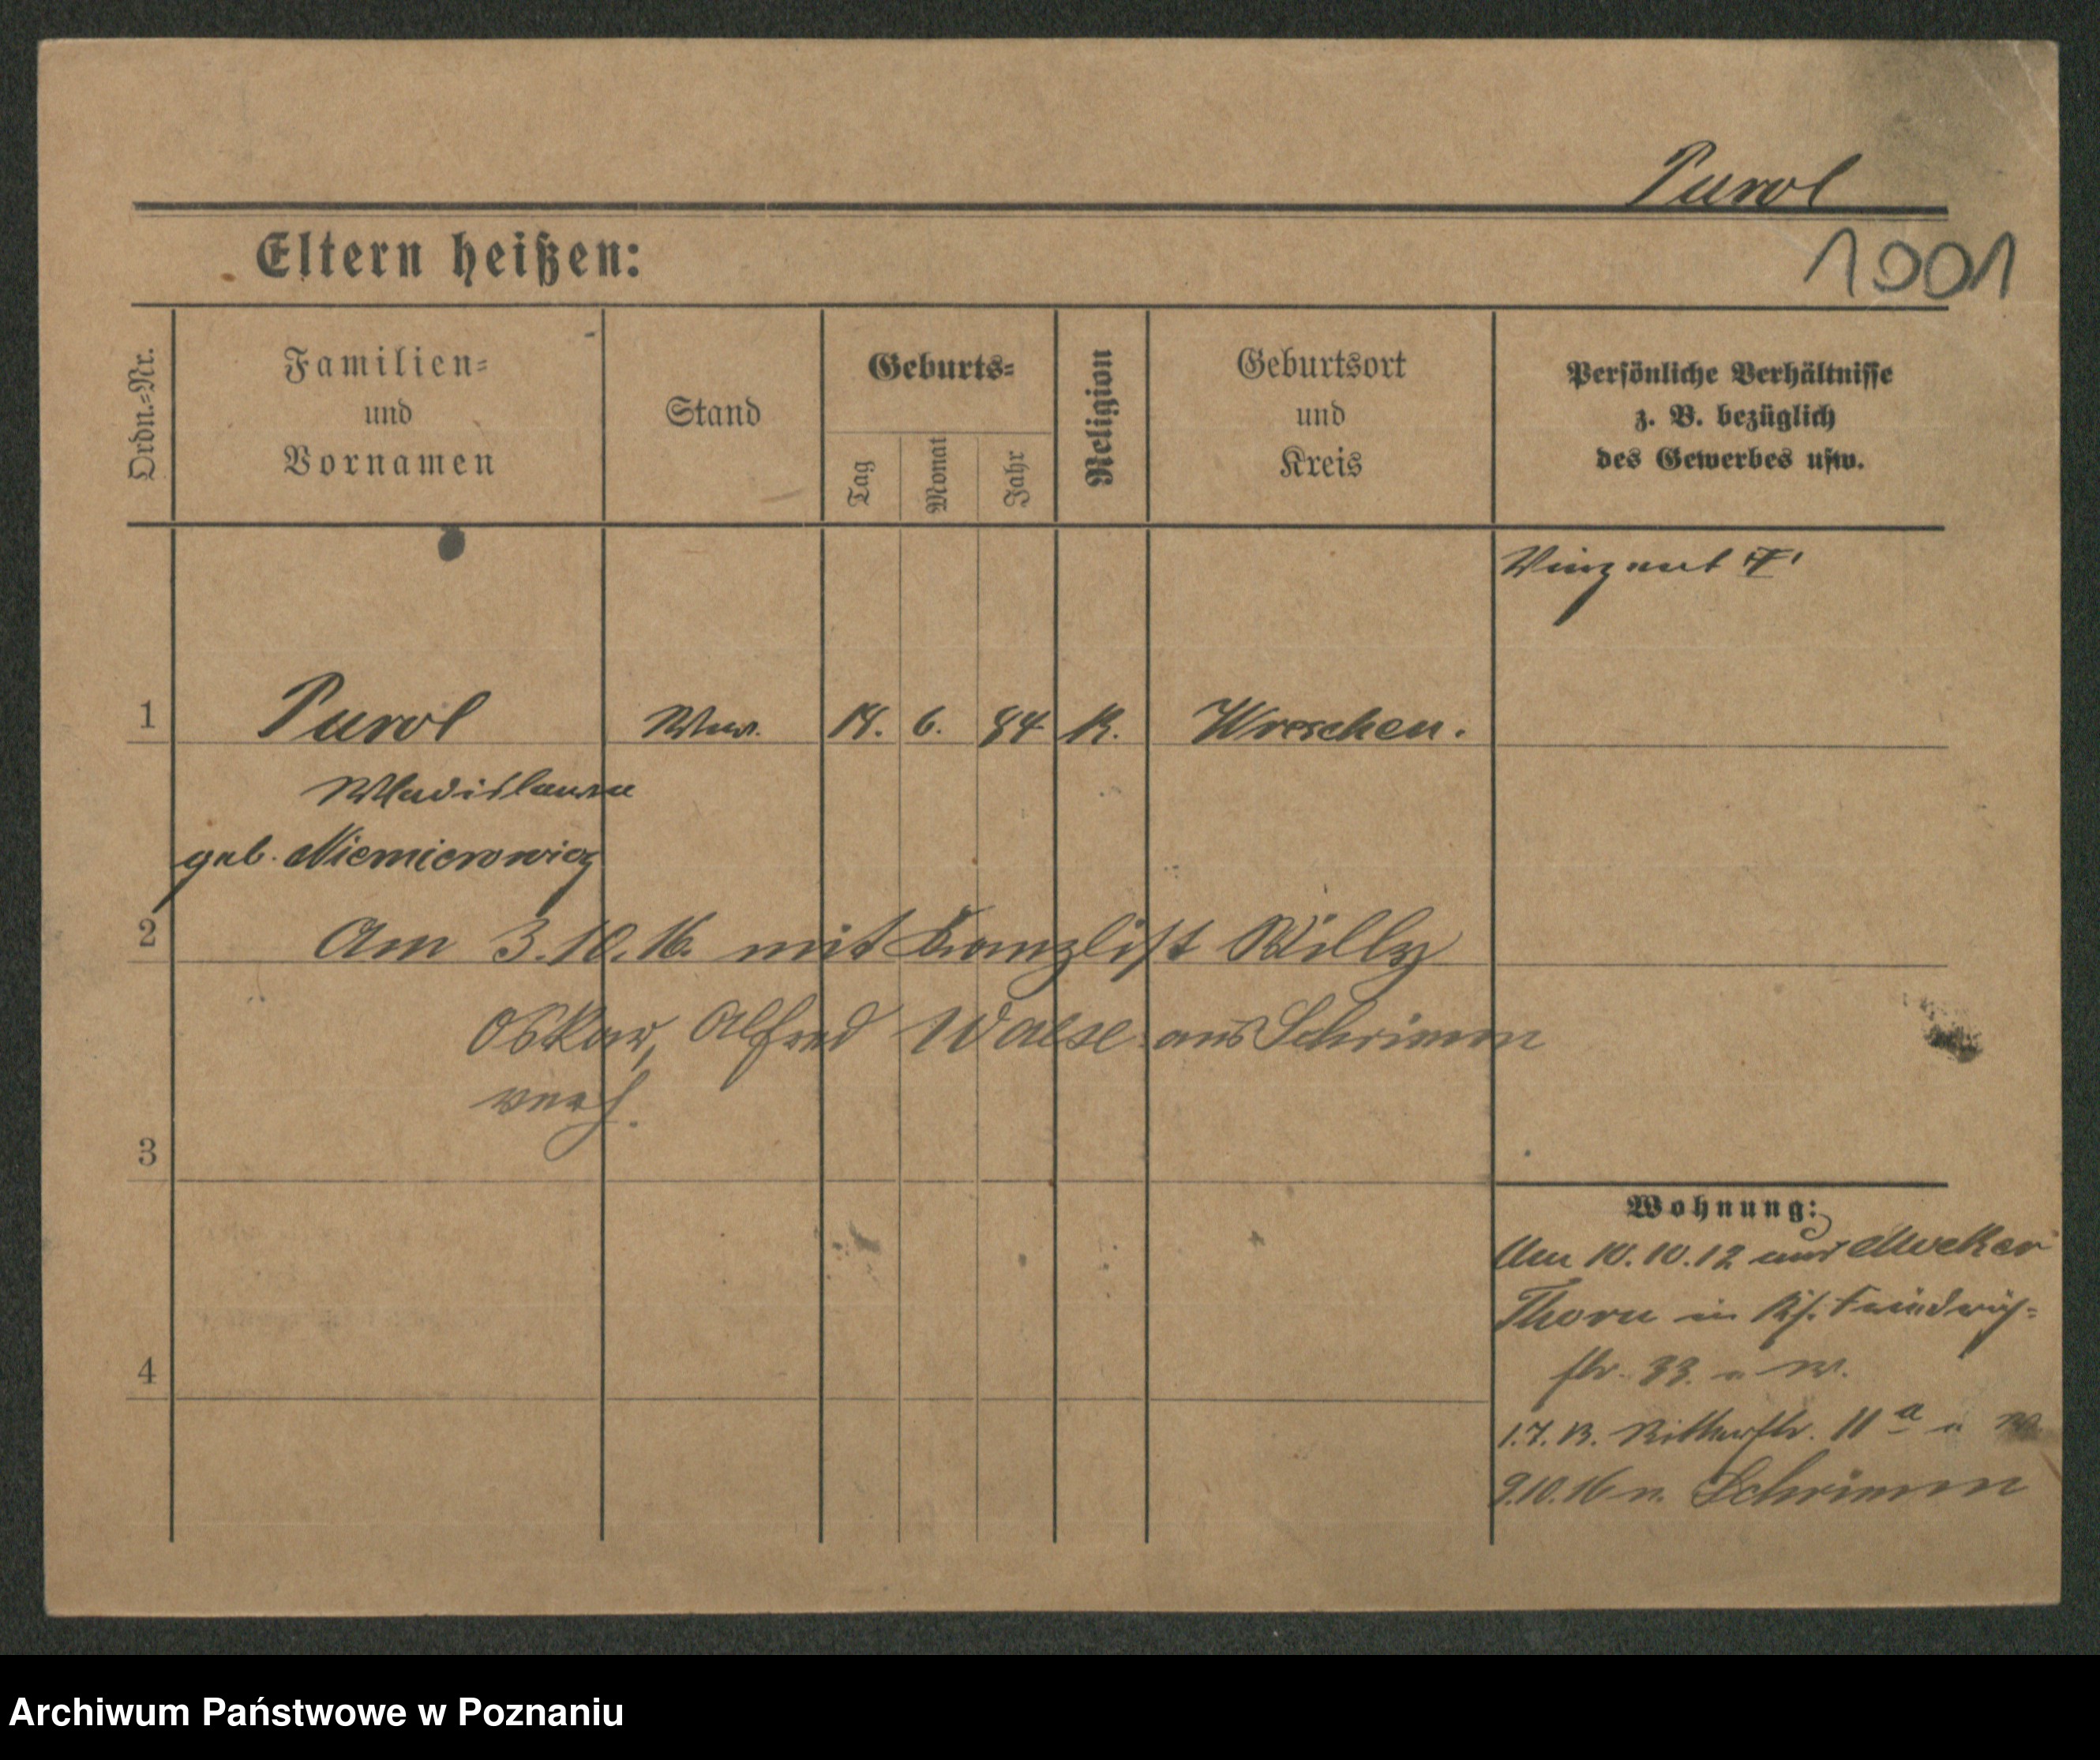 Purol
Eltern heißen:
1001
Ordn.-Nr.
Familien-
und
Vornamen
Stand
Geburts-
Tag
Monat
Jahr
Religion
Geburtsort
und
Kreis
Persönliche Verhältnisse
z. B. bezüglich
des Gewerbes usw.
Vinzent
1 Purol Wwe. 18. 6. 84 K. Wreschen.
Wladislawa
geb. Niemierowicz
2 Am 3.10.16. mit Kanzlist Willy
Oskar, Alfred Waese aus Schrimm
verh.
3
4
Wohnung:
Am 10.10.12 aus Mocker
Thorn in
str. 33.
1.7.13. Ritterstr. 11a
9.10.16 n. Schrimm
Archiwum Państwowe w Poznaniu